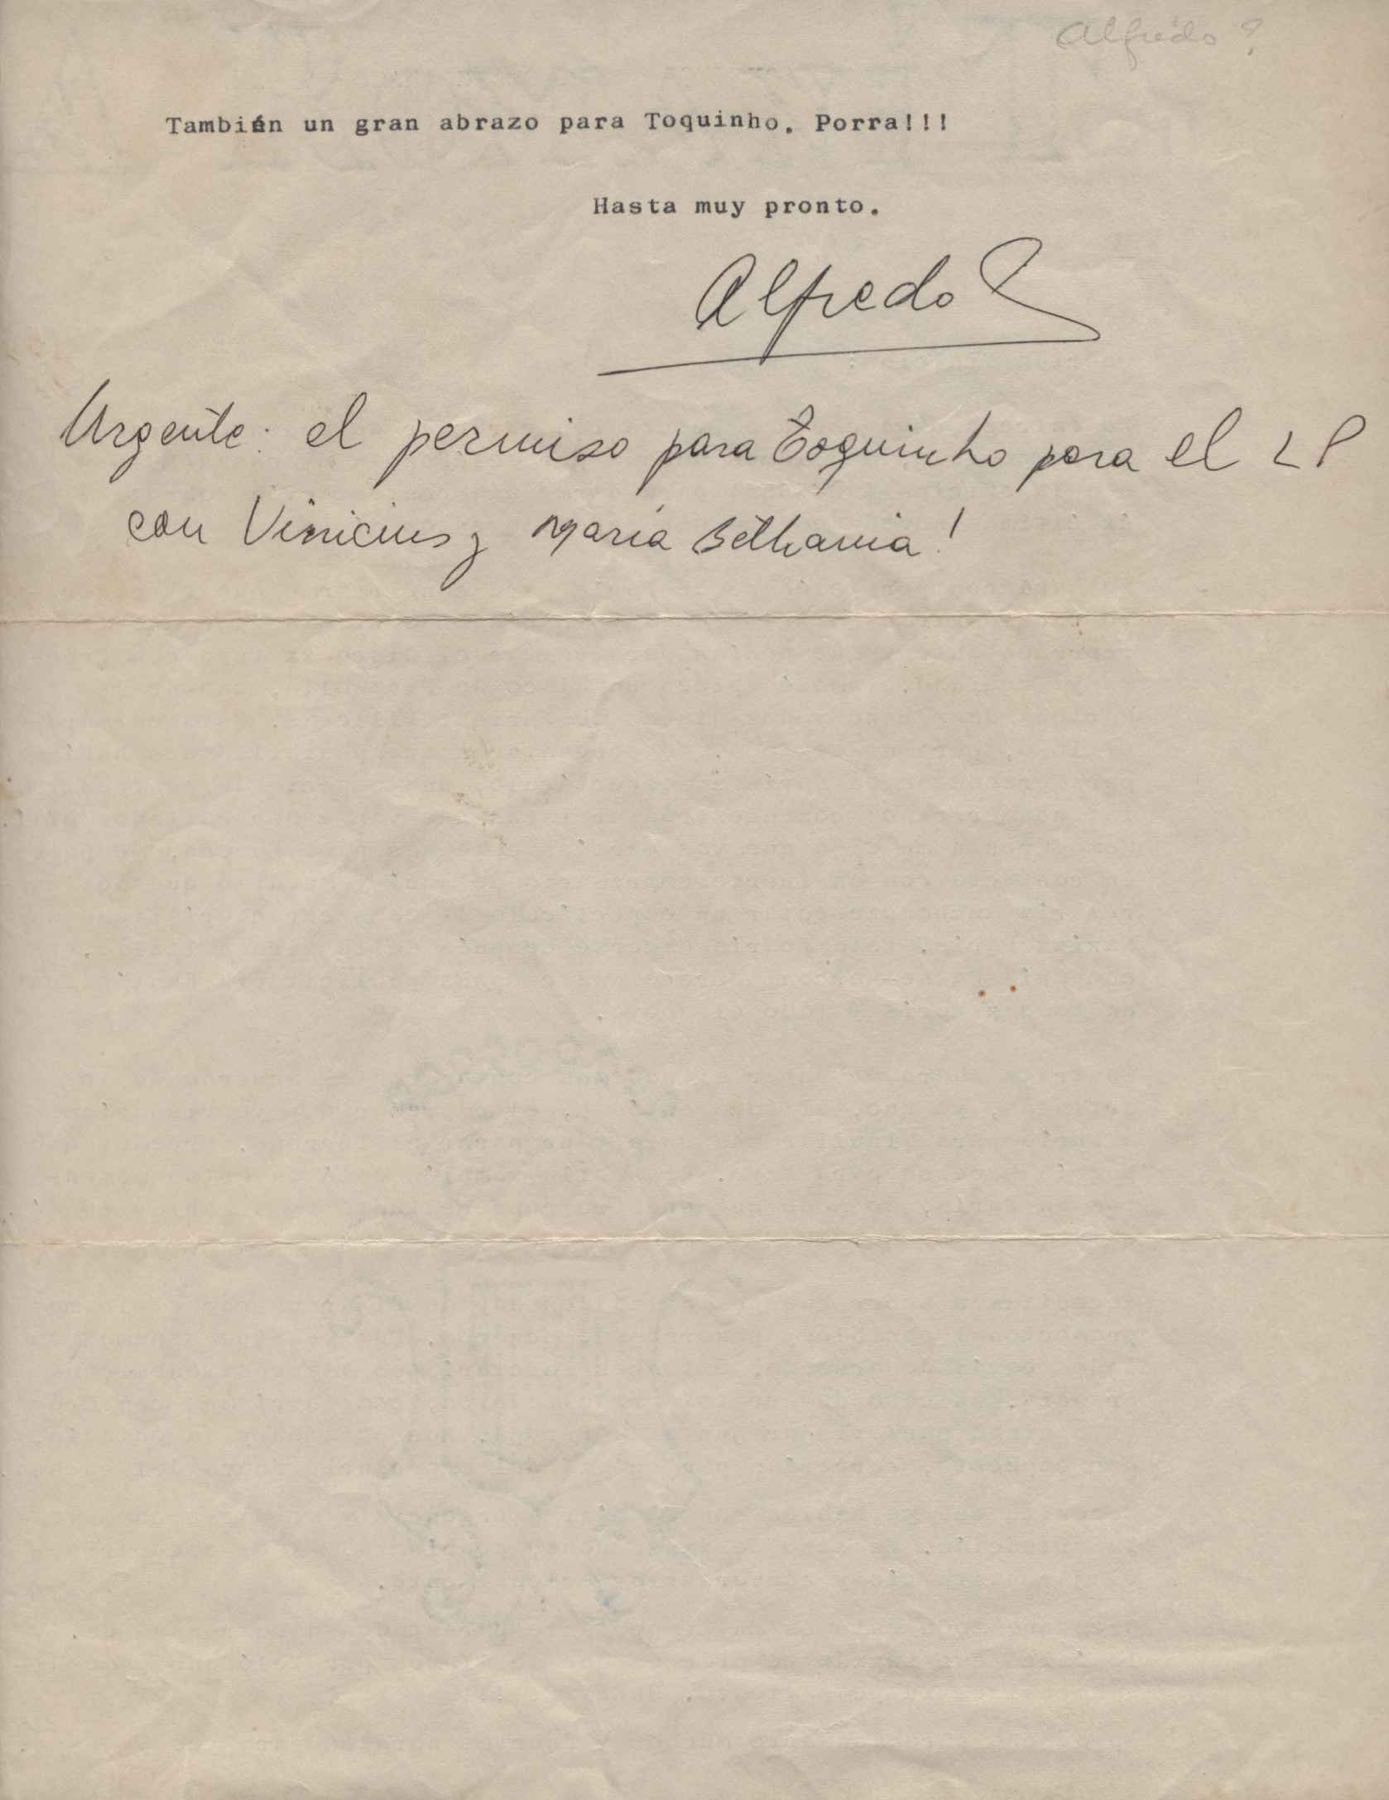 Alfredo ?
También un gran abrazo para Toquinho. Porra!!!
Hasta muy pronto.
Alfredo
Urgente: el permiso para Toquinho para el LP
con Vinicius y María Bethania!